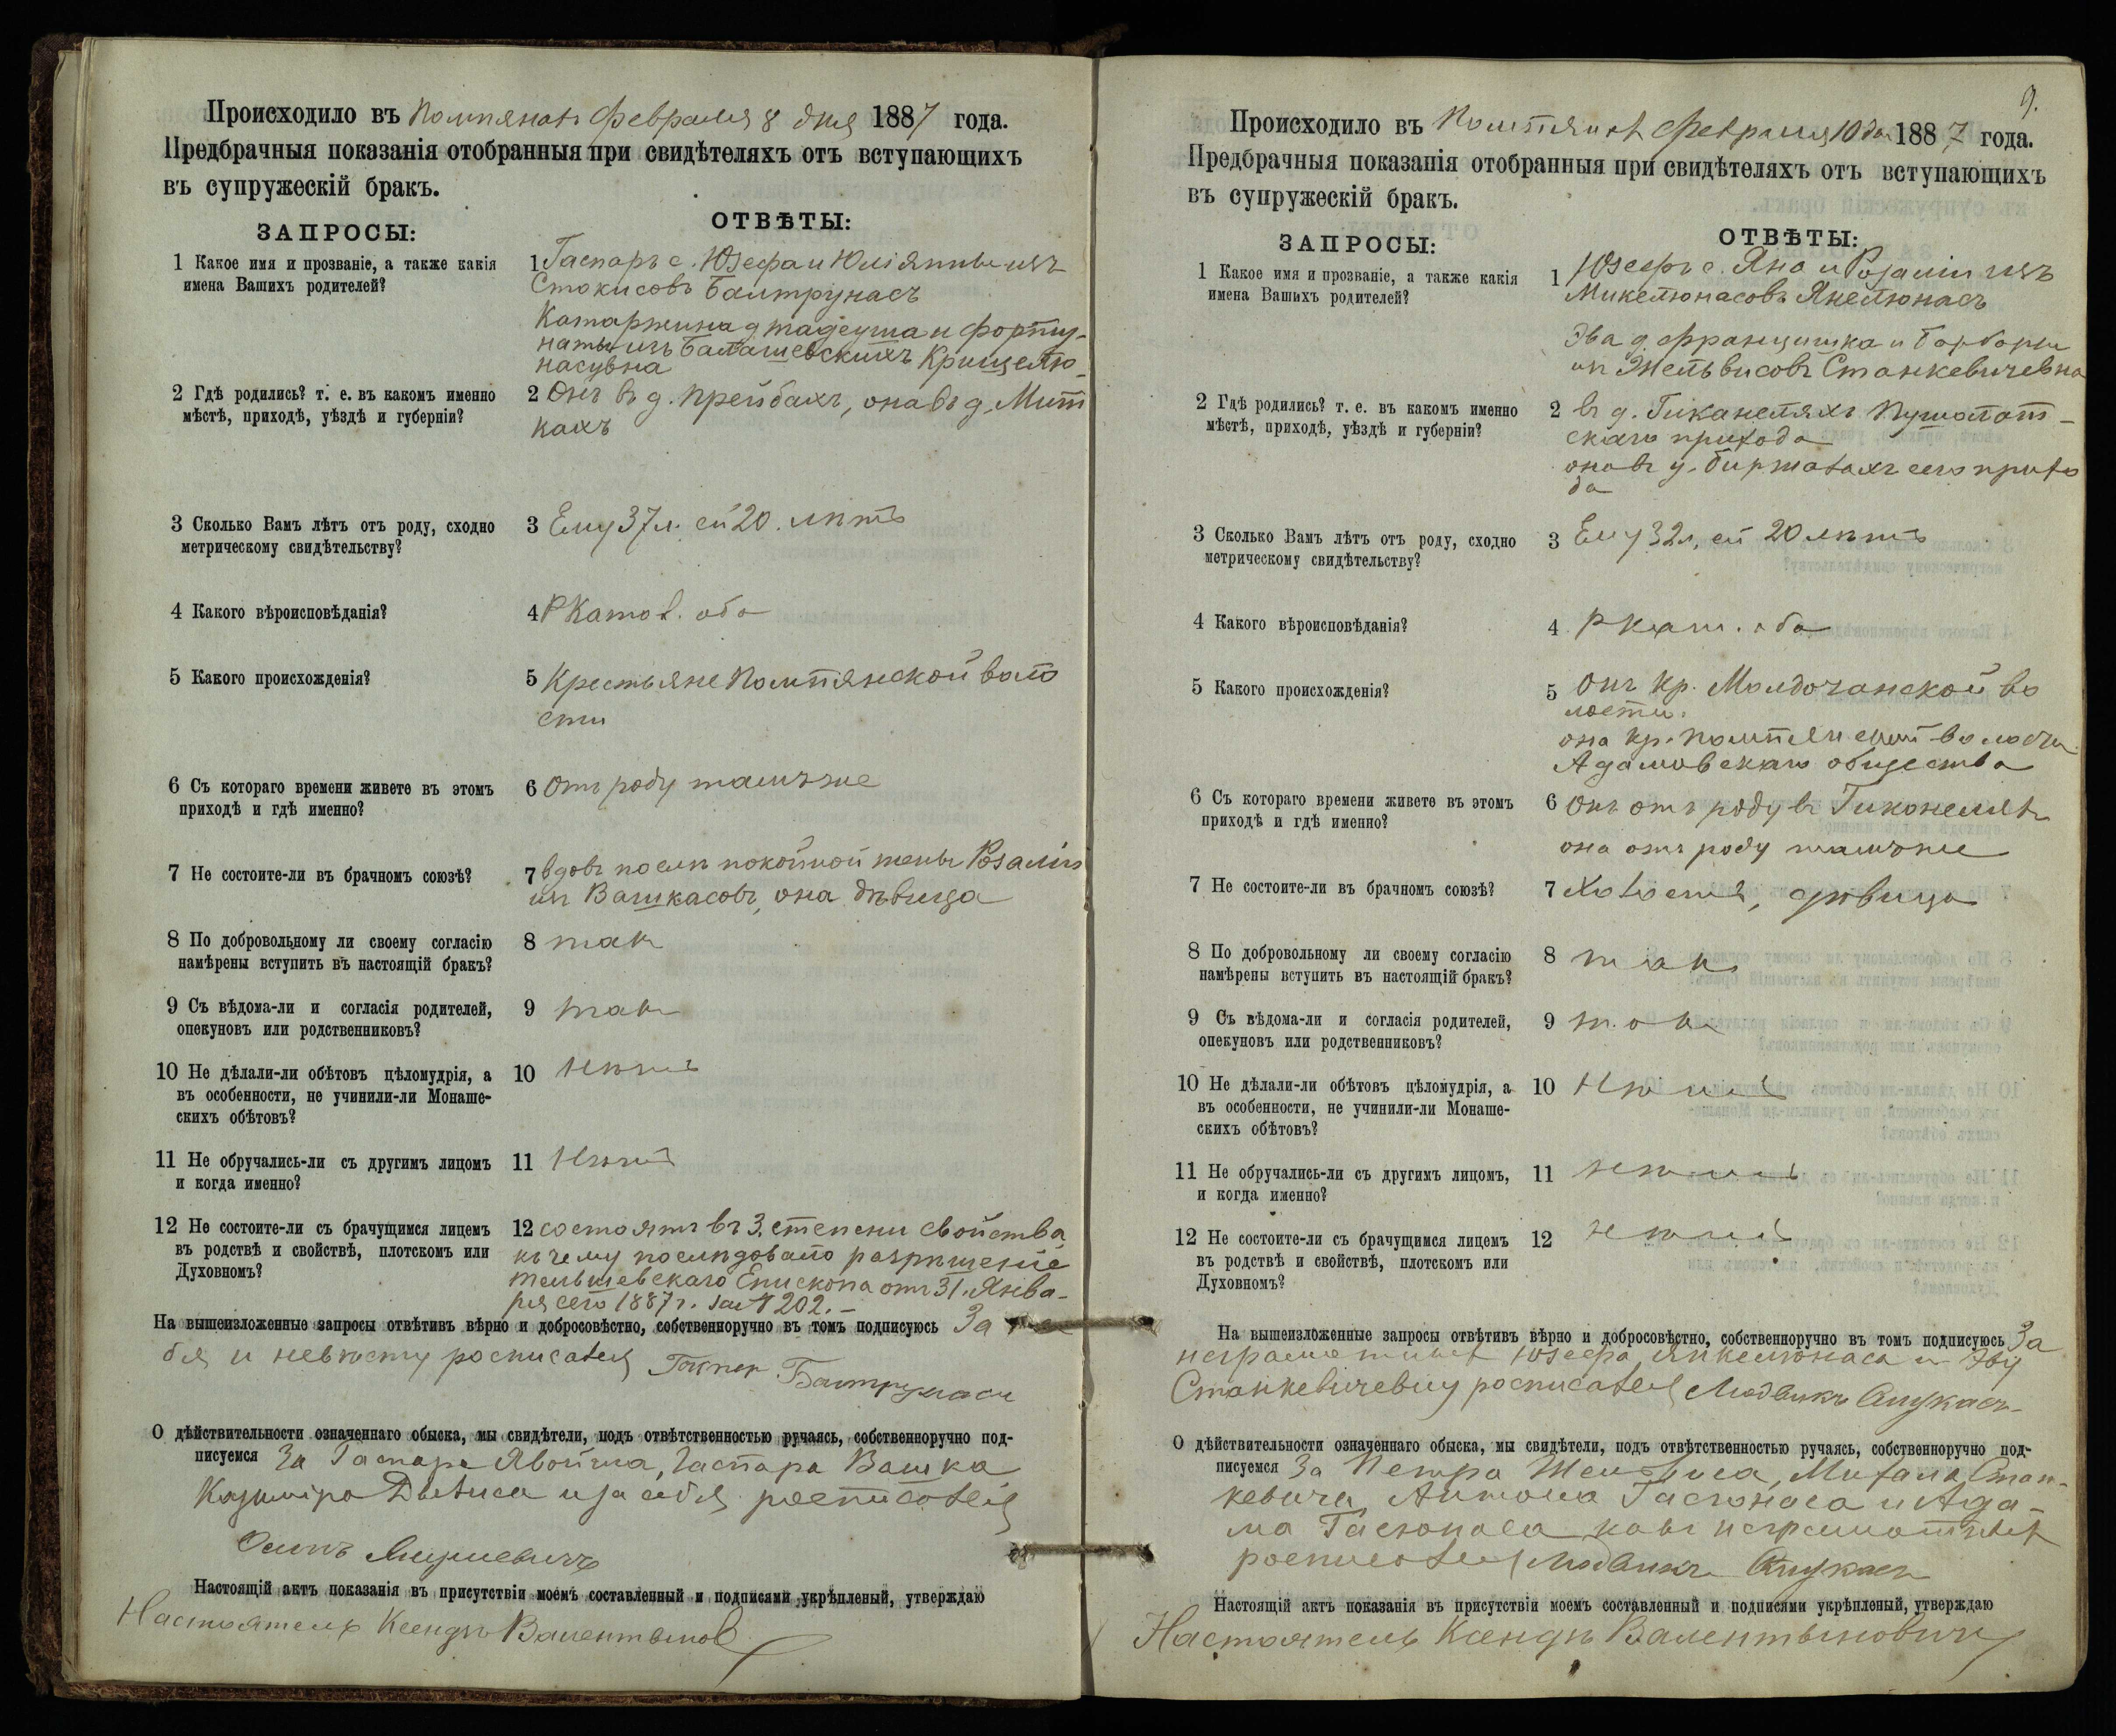 Происходило въ Помпянахъ февраля 8 дня 1887 года.
Предбрачныя показанія отобранныя при свидѣтеляхъ отъ вступающихъ
въ супружескій бракъ.
ЗАПРОСЫ:
ОТВѢТЫ:
1 Какое имя и прозваніе, а также какія
имена Вашихъ родителей?
1 Гаспаръ с. Юзефа и Юліянны изъ
Стокисовъ Балтрунасъ
Катаржина д Тадеуша и Форту-
наты изъ Балашевскихъ Крищелю-
насувна
2 Гдѣ родились? т. е. въ какомъ именно
мѣстѣ, приходѣ, уѣздѣ и губерніи?
2 Онъ въ д. Прейбахъ, она въ д. Мит
кахъ
3 Сколько Вамъ лѣтъ отъ роду, сходно
метрическому свидѣтельству?
3 Ему 37 л. ей 20. лѣтъ
4 Какого вѣроисповѣданія?
4 РКатол. оба
5 Какого происхожденія?
5 Крестьяне Помпянской воло
сти
6 Съ котораго времени живете въ этомъ
приходѣ и гдѣ именно?
6 Отъ роду тамъже
7 Не состоите-ли въ брачномъ союзѣ?
7 вдовъ послѣ покойной жены Розаліи
изъ Вашкасовъ, она дѣвица
8 По добровольному ли своему согласію
намѣрены вступить въ настоящій бракъ?
8 такъ
9 Съ вѣдома-ли и согласія родителей,
опекуновъ или родственниковъ?
9 такъ
10 Не дѣлали-ли обѣтовъ цѣломудрія, а
въ особенности, не учинили-ли Монаше-
скихъ обѣтовъ?
10 Нѣтъ
11 Не обручались-ли съ другимъ лицомъ
и когда именно?
11 Нѣтъ
12 Не состоите-ли съ брачущимся лицемъ
въ родствѣ и свойствѣ, плотскомъ или
Духовномъ?
12 состоятъ въ 3. степени свойства
къ чему послѣдовало разрѣшеніе
тельшевскаго Епископа отъ 31. Янва-
ря сего 1887 г. за № 202. —
На вышеизложенные запросы отвѣтивъ вѣрно и добросовѣстно, собственноручно въ томъ подписуюсь За се
бя и невѣсту росписался Балтрунасъ
О дѣйствительности означеннаго обыска, мы свидѣтели, подъ отвѣтственностью ручаясь, собственноручно под-
писуемся За Гаспара Явойша, Гаспара Вашка
Казиміра и за себя росписался
Осипъ
Настоящій актъ показанія въ присутствіи моемъ составленный и подписями укрѣпленый, утверждаю
Настоятель Ксендзъ Валентынов
9.
Происходило въ Помпянахъ Февраля 10 дня 1887 года.
Предбрачныя показанія отобранныя при свидѣтеляхъ отъ вступающихъ
въ супружескій бракъ.
ЗАПРОСЫ:
ОТВѢТЫ:
1 Какое имя и прозваніе, а также какія
имена Вашихъ родителей?
1 Юзефъ с. Яна и Розаліи изъ
Микелюнасовъ Янелюнасъ
Эва д. Францишка и Барбары
изъ Жельвисовъ Станкевичевна
2 Гдѣ родились? т. е. въ какомъ именно
мѣстѣ, приходѣ, уѣздѣ и губерніи?
2 въ д. Гиканеляхъ Пушолат-
скаго прихода
она въ у. Биржалахъ сего прихо
да
3 Сколько Вамъ лѣтъ отъ роду, сходно
метрическому свидѣтельству?
3 Ему 32 л, ей 20 лѣтъ
4 Какого вѣроисповѣданія?
4 Ркат. оба
5 Какого происхожденія?
5 Онъ кр. Молдочанской во
лости.
она кр. Помпянской волости
Адамовскаго общества
6 Съ котораго времени живете въ этомъ
приходѣ и гдѣ именно?
6 Онъ отъ роду въ Гиконеляхъ
она отъ роду тамъже
7 Не состоите-ли въ брачномъ союзѣ?
7 Холостъ, дѣвица
8 По добровольному ли своему согласію
намѣрены вступить въ настоящій бракъ?
8 такъ
9 Съ вѣдома-ли и согласія родителей,
опекуновъ или родственниковъ?
9 такъ
10 Не дѣлали-ли обѣтовъ цѣломудрія, а
въ особенности, не учинили-ли Монаше-
скихъ обѣтовъ?
10 Нѣтъ
11 Не обручались-ли съ другимъ лицомъ,
и когда именно?
11 нѣтъ
12 Не состоите-ли съ брачущимся лицемъ
въ родствѣ и свойствѣ, плотскомъ или
Духовномъ?
12 нѣтъ
На вышеизложенные запросы отвѣтивъ вѣрно и добросовѣстно, собственноручно въ томъ подписуюсь За
неграмотныхъ Юзефа Янкелюнаса и Эву
Станкевичевну росписался Людвикъ
О дѣйствительности означеннаго обыска, мы свидѣтели, подъ отвѣтственностью ручаясь, собственноручно под-
писуемся За Петра Жельвиса, Михала Стан-
кевича, Антона Гасюнаса и Ада-
ма Гасюнаса неграмотныхъ
росписался Людвикъ
Настоящій актъ показанія въ присутствіи моемъ составленный и подписями укрѣпленый, утверждаю
Настоятель Ксендзъ Валентыновичъ